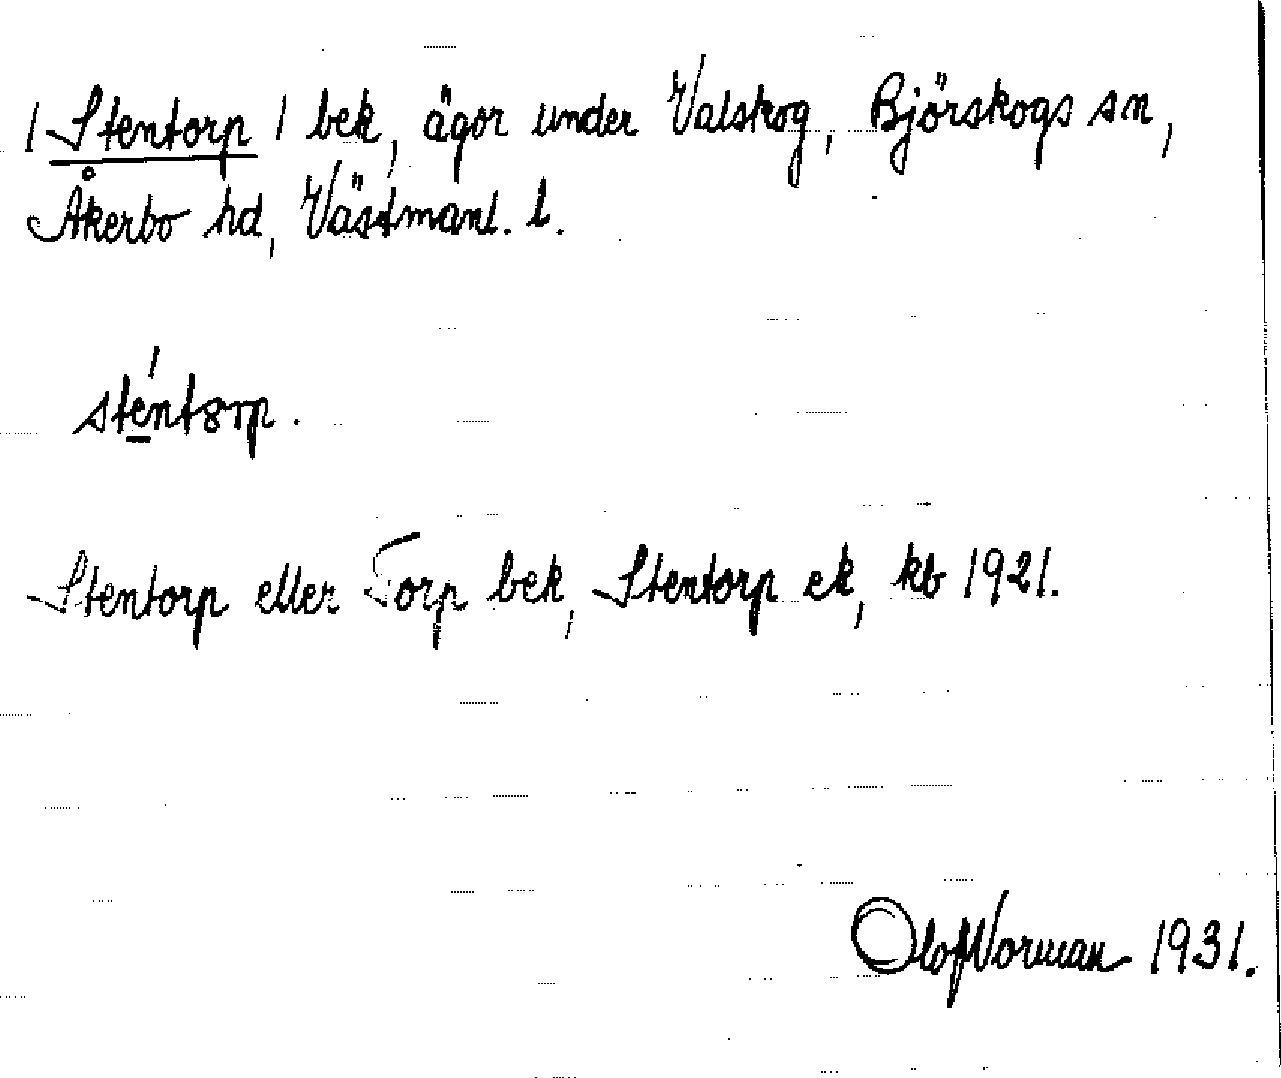 / Stentorp / bek, ägor under Valskog, Björskogs sn,
Åkerbo hd, Västmanl. l.
sténtorp.
Stentorp eller Torp bek, Stentorp ek, kb 1921.
Olof Norman 1931.